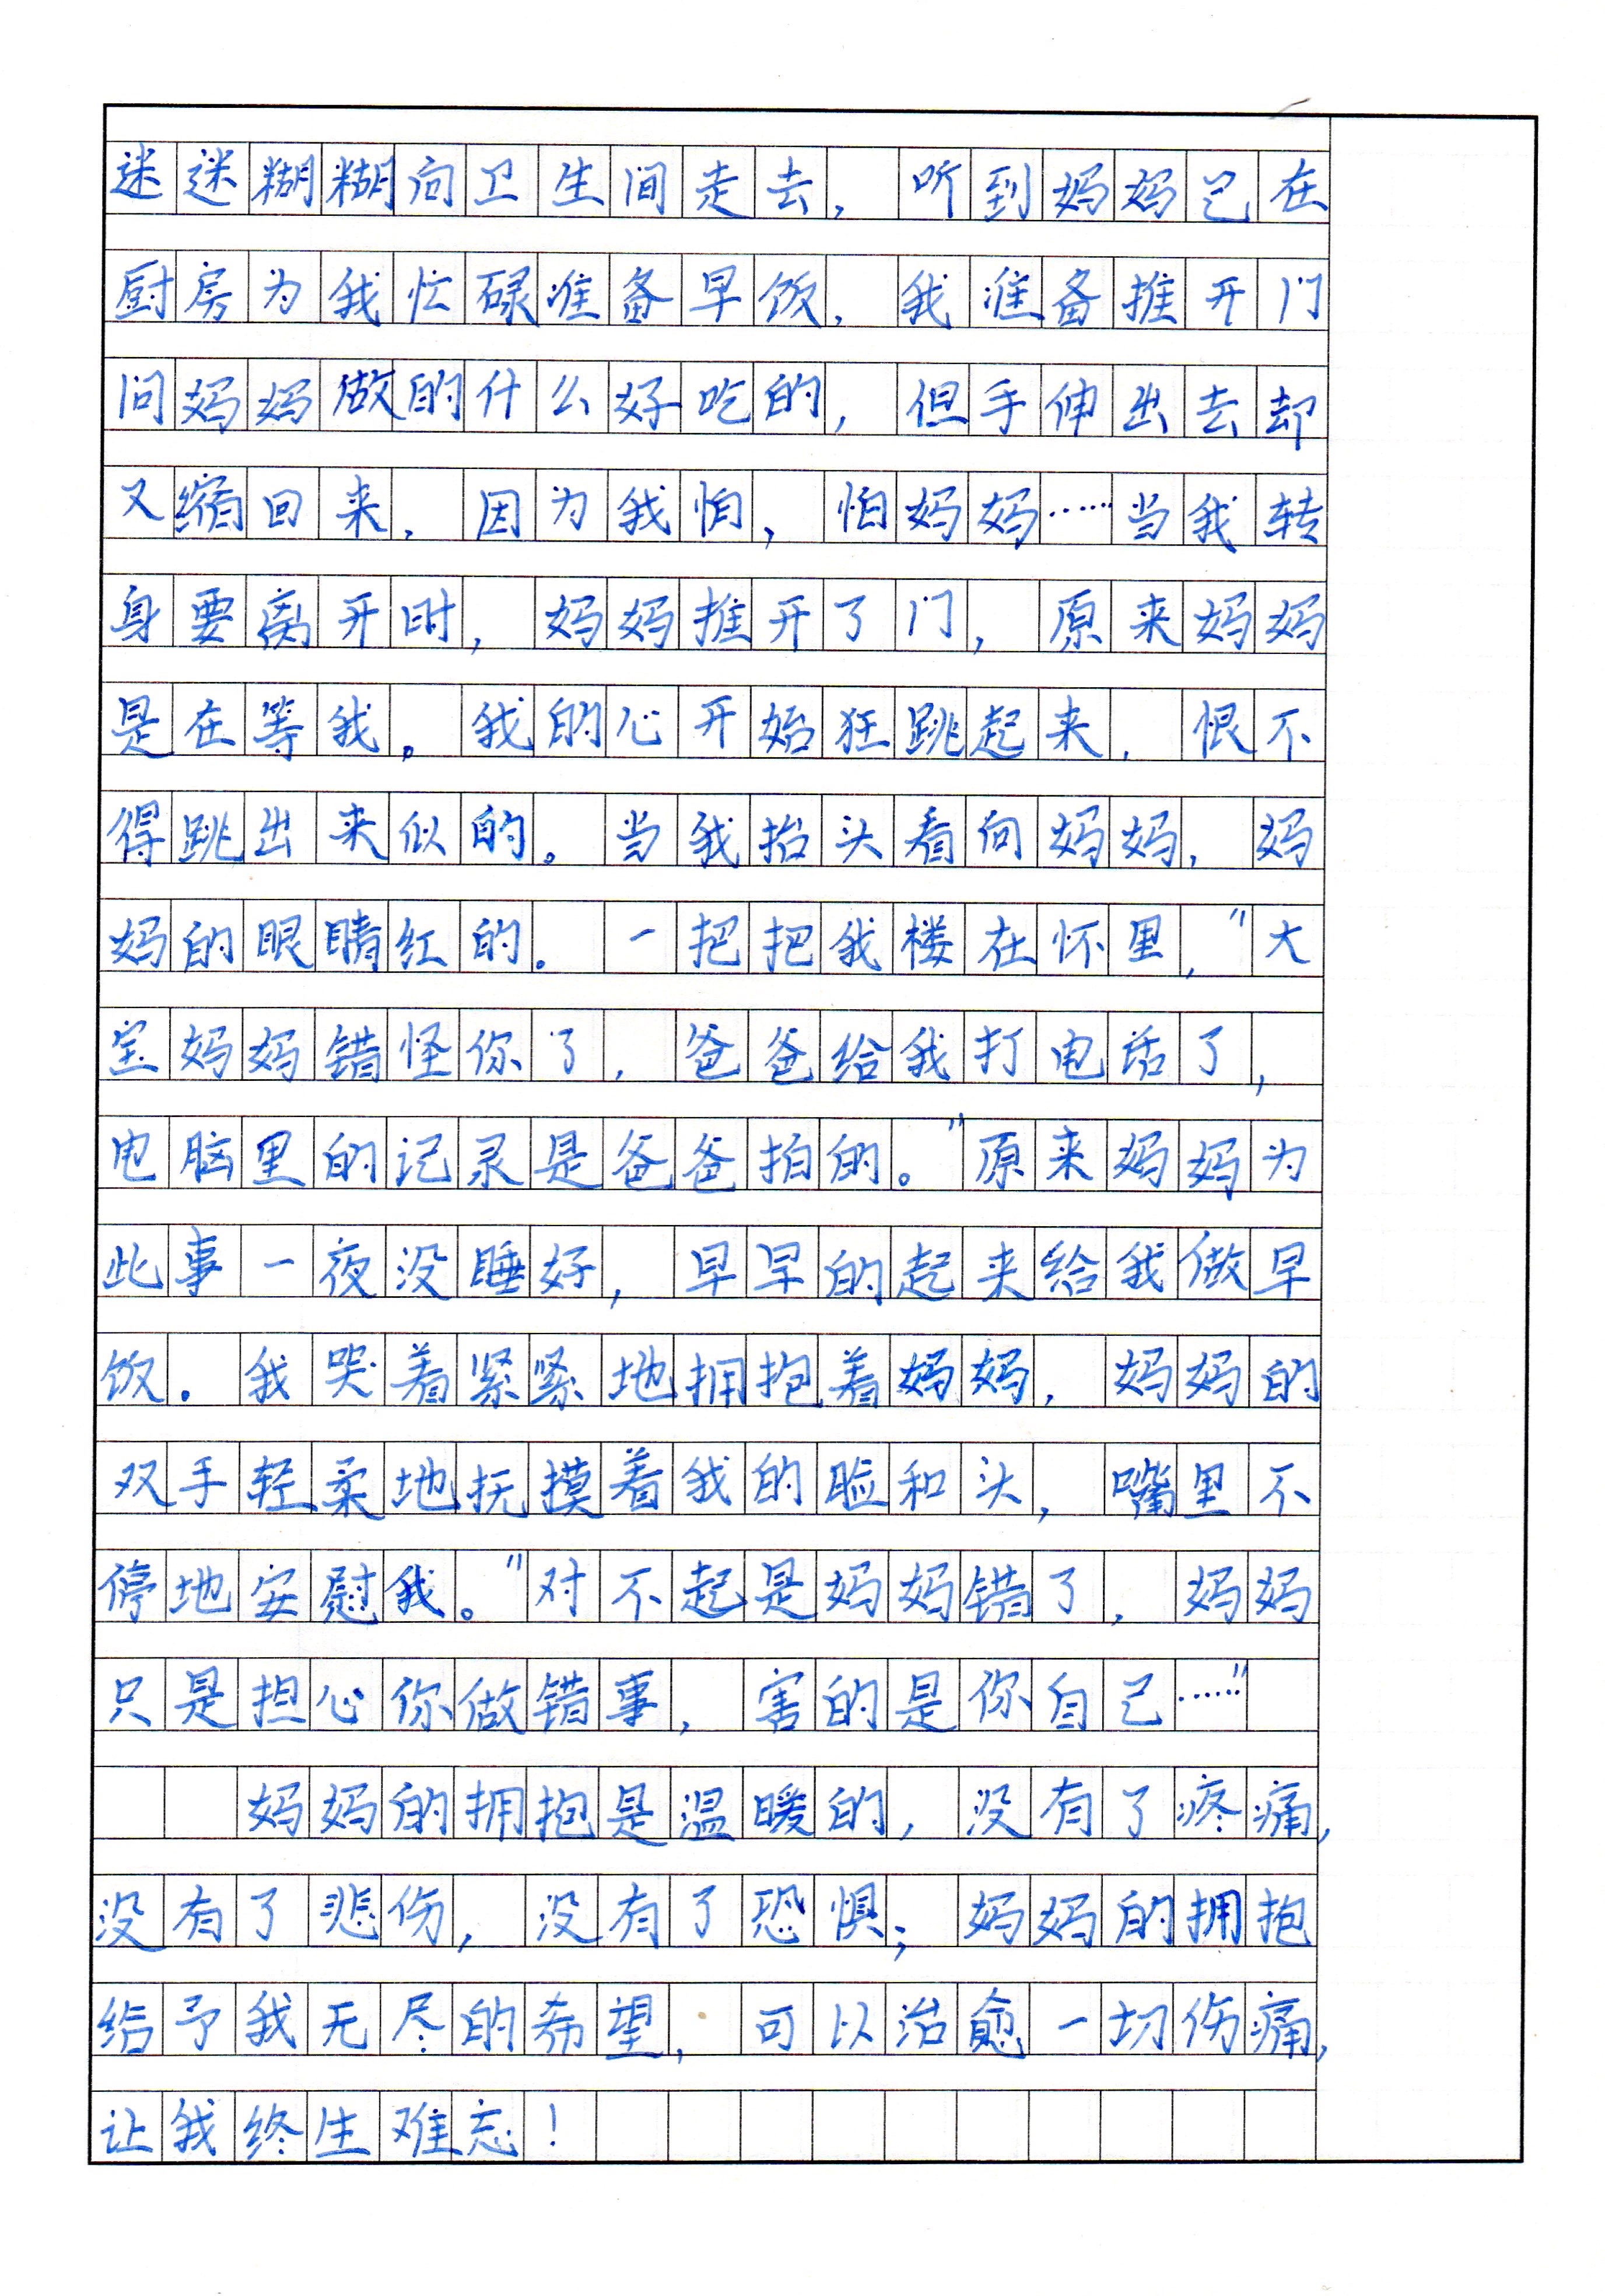 迷迷糊糊向卫生间走去，听到妈妈已在
厨房为我忙碌准备早饭，我准备推开门
问妈妈做的什么好吃的，但手伸出去却
又缩回来，因为我怕，怕妈妈……当我转
身要离开时，妈妈推开了门，原来妈妈
是在等我。我的心开始狂跳起来，恨不
得跳出来似的。当我抬头看向妈妈，妈
妈的眼睛红的。一把把我楼在怀里，“大
宝妈妈错怪你了，爸爸给我打电话了，
电脑里的记录是爸爸拍的。”原来妈妈为
此事一夜没睡好，早早的起来给我做早
饭。我哭着紧紧地拥抱着妈妈，妈妈的
双手轻柔地抚摸着我的脸和头，嘴里不
停地安慰我。“对不起是妈妈错了，妈妈
只是担心你做错事，害的是你自己……”
妈妈的拥抱是温暖的，没有了疼痛，
没有了悲伤，没有了恐惧；妈妈的拥抱
给予我无尽的希望，可以治愈一切伤痛，
让我终生难忘！